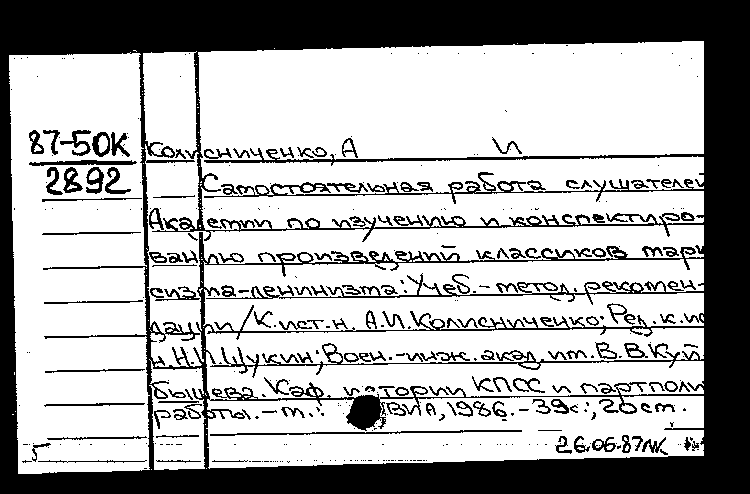 87-50К Колисниченко, А И
2892 Самостоятельная работа слушателей
Академии по изучению и конспектиро-
ванию произведений классиков марк
сизма-ленинизма: Учеб.-метод. рекомен-
дации/К.ист.н. А.И.Колисниченко; Ред. к.ис
н. Н.И.Щукин; Воен.-инж. акад. им. В.В.Куй
бышева. Каф. истории КПСС и партполи
работы.-м.: ВИА, 1986.-39с.; 20см.
26.06.87
5